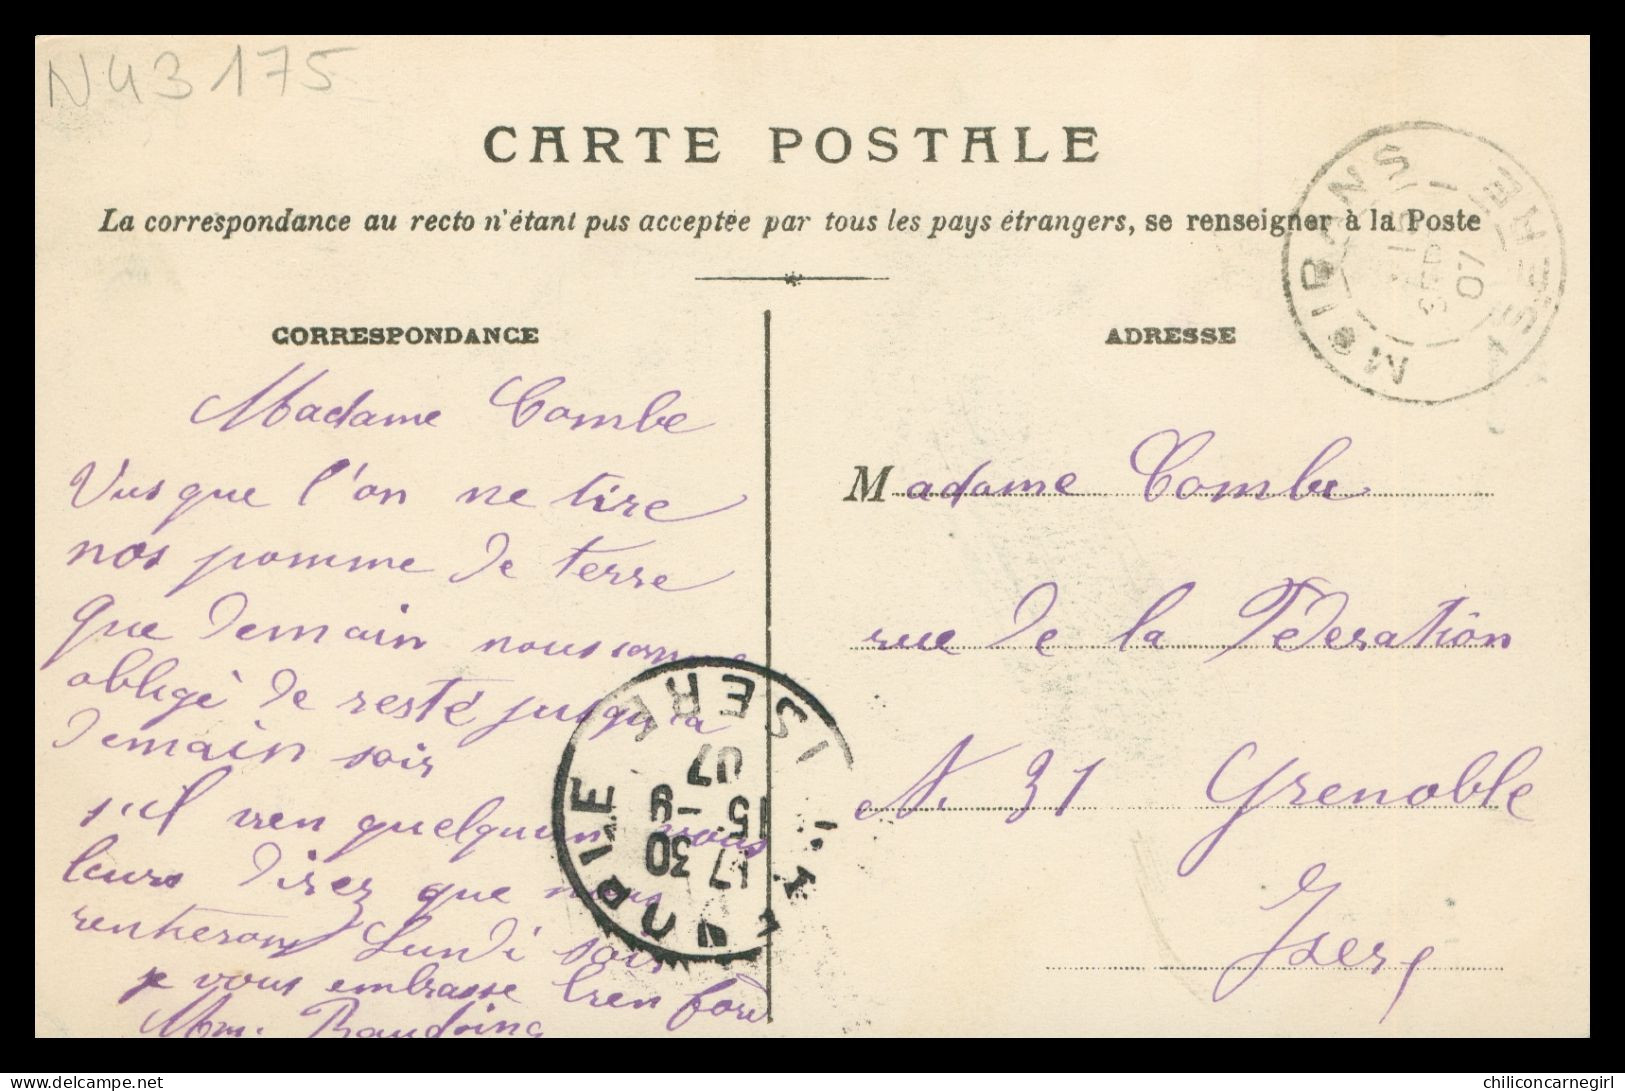 N43175
CARTE POSTALE
La correspondance au recto n'étant pas acceptée par tous les pays étrangers, se renseigner à la Poste
CORRESPONDANCE
ADRESSE
MOIRANS ISERE
15
SEPT
07
Madame Combe
Vus que l'on ne tire
nos pomme de terre
que demain nous somme
obligé de resté jusqu'a
demain soir
s'il vien quelquun vous
leurs direz que nous
rentreron Lundi soir
je vous embrasse bien fort
Mm. Baudoing
Madame Combe
rue de la Federation
N. 31 Grenoble
Isere
ISERE
07
15-9
17 30